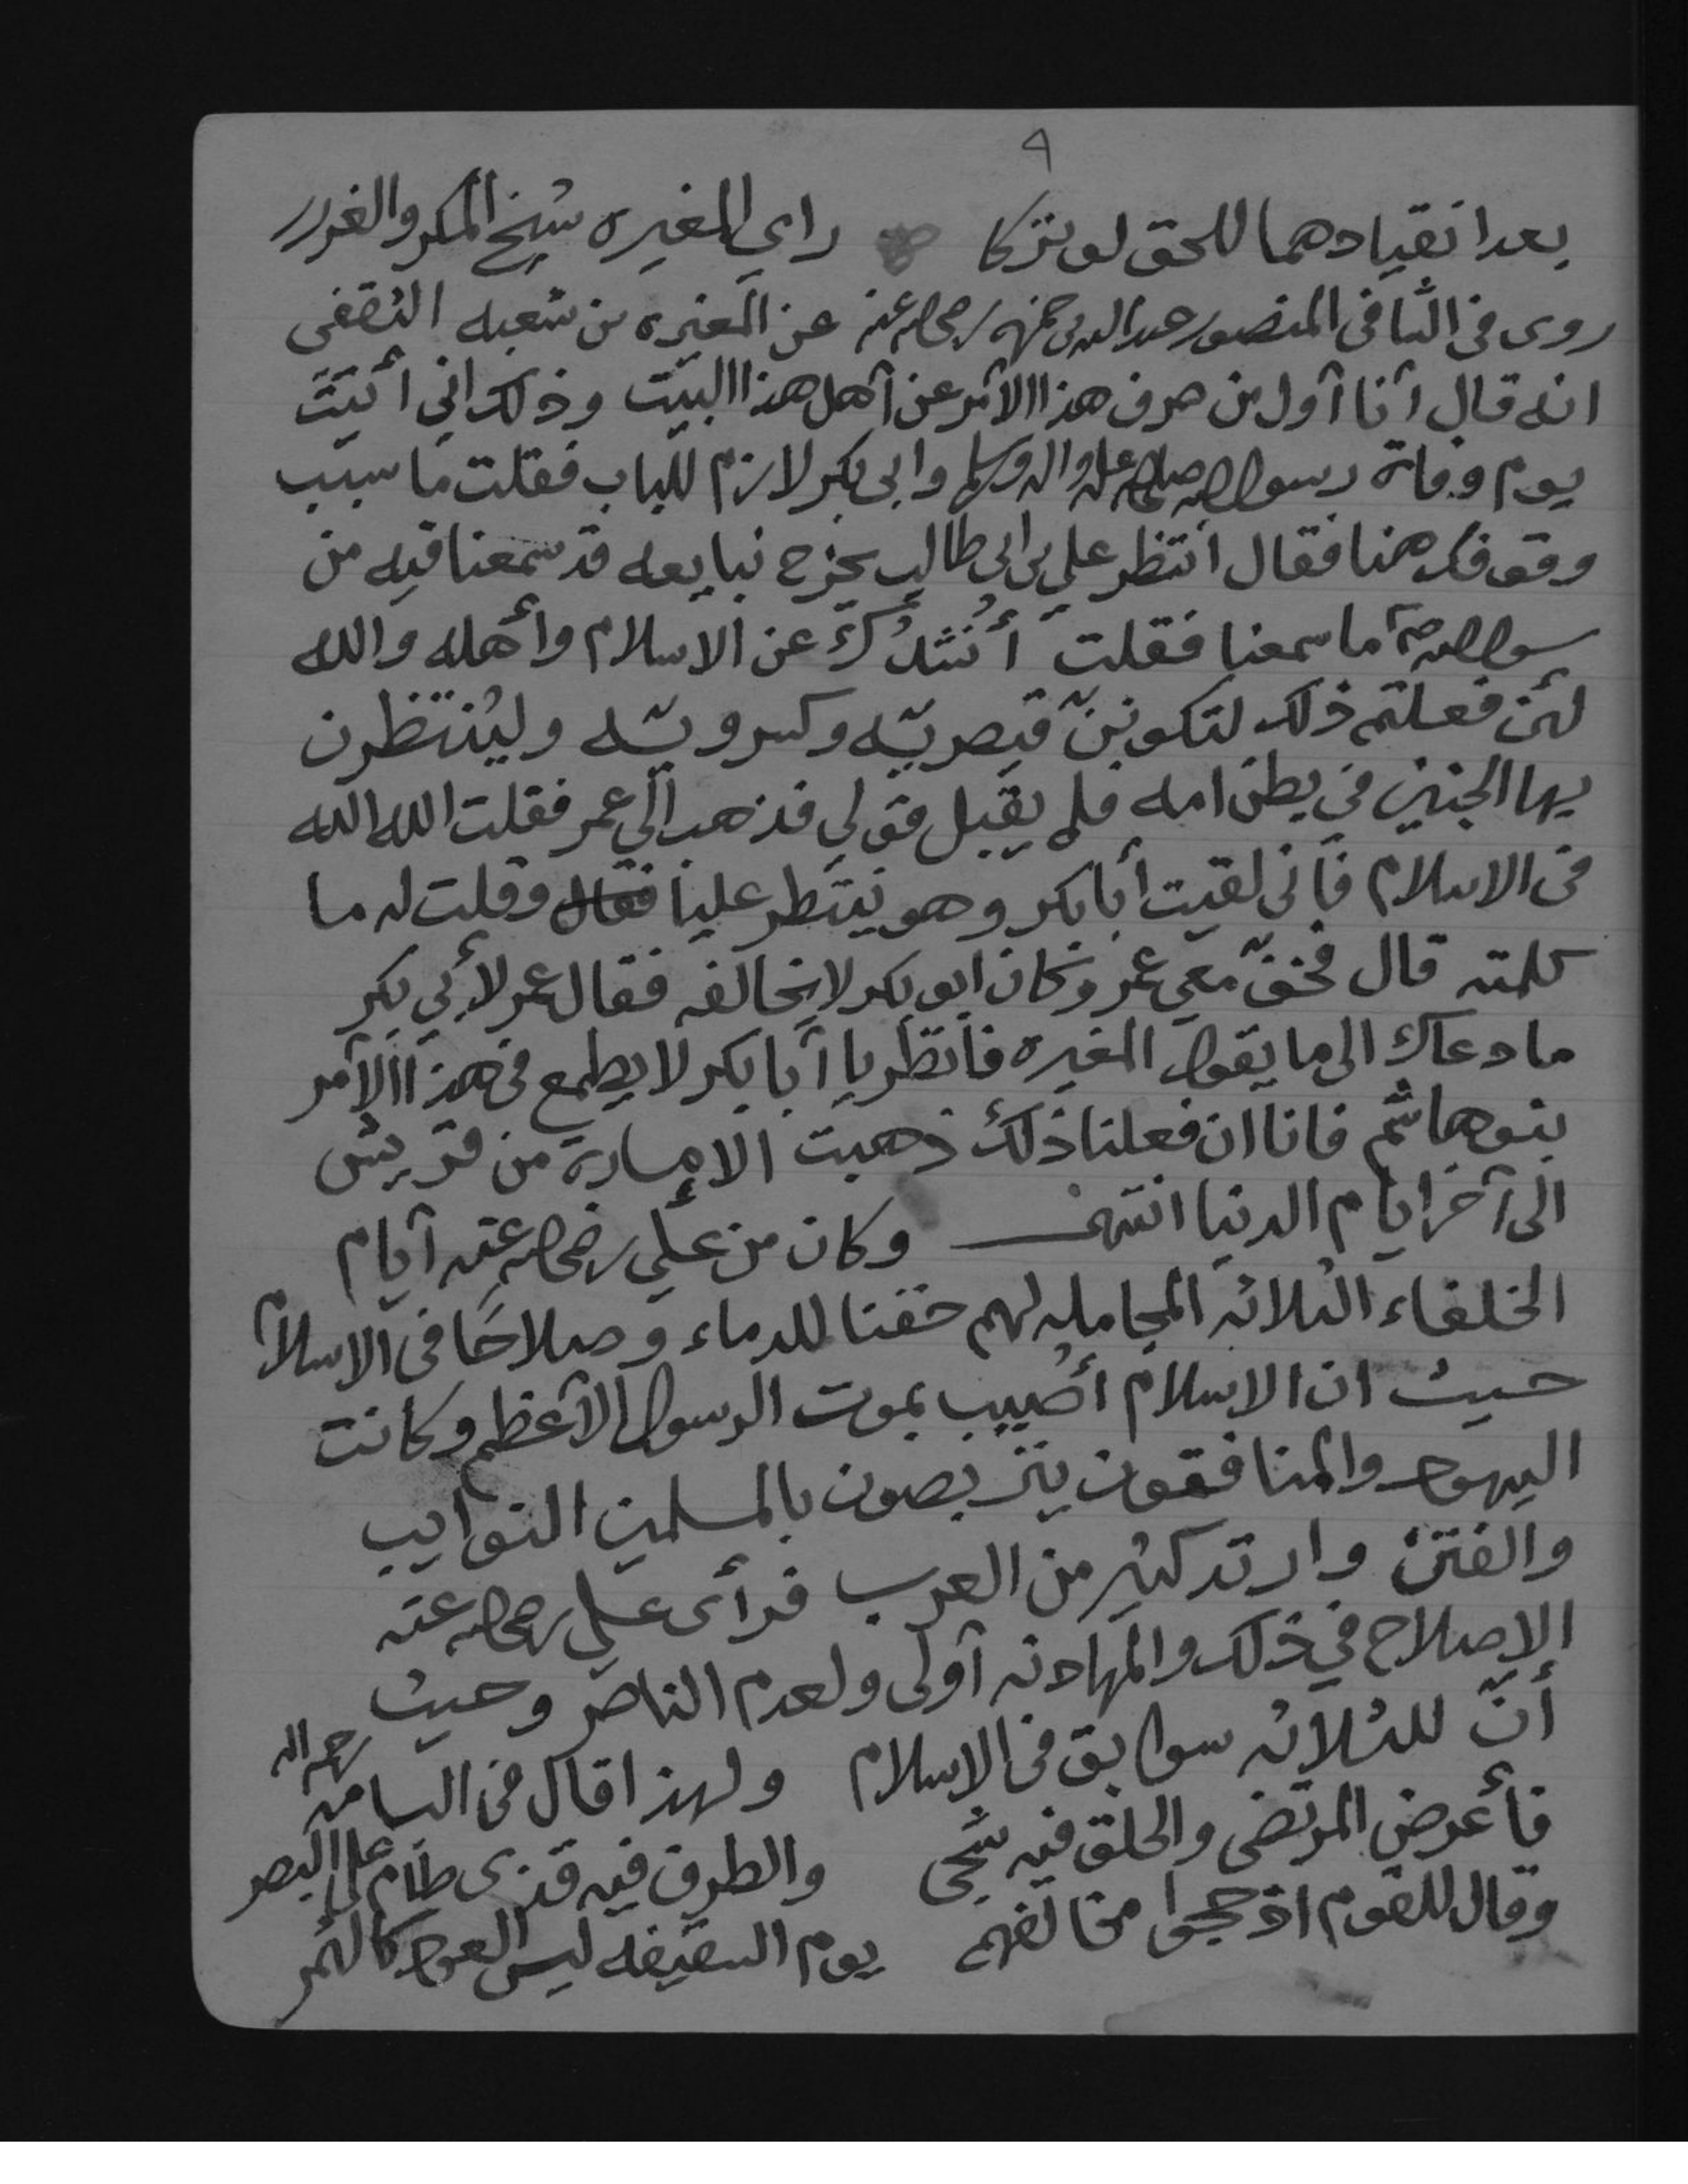 ٩
بعد انقيادهما للحق لو تركا راي المغيره شيخ المكر والغرر
روى في الشافي المنصور عبدالله بن حمزه رضي الله عنه عن المغيره بن شعبه الثقفي
انه قال أنا أول من صرف هذا الأمر عن أهل هذا البيت وذلك اني أتيت
يوم وفاة رسول الله صلى الله عليه واله وسلم وابي بكر لازم للباب فقلت ما سبب
وقوفك همنا فقال انتظر علي بن ابي طالب يخرج نبايعه قد سمعنا فيه من
رسول الله صلم ما سمعنا فقلت أنشدُك عن الاسلام وأهله والله
لئن فعلتم ذلك لتكونَنّ قيصريّه وكسرويّه وليُنتظرن
بها الجنين في بطن امه فلم يقبل قولي فذهب الى عمر فقلت الله الله
في الاسلام فأني لقيت أبا بكر وهو ينتظر عليا فقال وقلت له ما
كلمته قال فخفّ معي عمر وكان ابو بكر لا يخالفه فقال عمر لأبي بكر
ما دعاك الى ما يقول المغيره فانظر يا أبا بكر لا يطمع في هذا الأمر
بنو هاشم فانا ان فعلنا ذلك ذهبت الإمارة من قريش
الى آخر ايام الدنيا انتهى وكان من علي رضي الله عنه أيام
الخلفاء الثلاثه المجامله لهم حقنا للدماء وصلاحًا في الاسلام
حيث ان الاسلام أُصيب بموت الرسول الأعظم وكانت
اليهود والمنافقون يتربصون بالمسلمين النوايب
والفتن وارتد كثير من العرب فرأى علي رضي الله عنه
الإصلاح في ذلك والمهادنه أولى ولعدم الناصر وحيث
أنّ للثلاثه سوابق في الإسلام ولهذا قال في البسامه رحمه الله
فأعرض المرتضى والحلق فيه شجى والطرف فيه قذى طام على البصر
وقال للقوم اذ حجوا مخالفهم يوم السقيفه ليس العود كالثمر